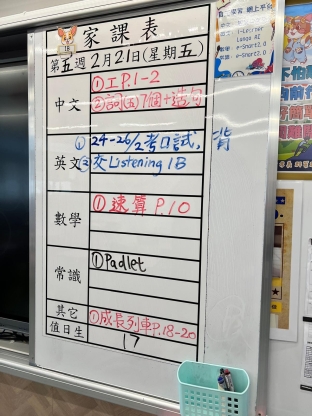 家課表
第五週2月21日(星期五)
中文
①工P.1-2
②詞(五)7個+造句
英文
①24-26/2考口試,背
②交Listening 1B
數學
①速算P.10
常識
①Padlet
其它
①成長列車P.18-20
值日生
17